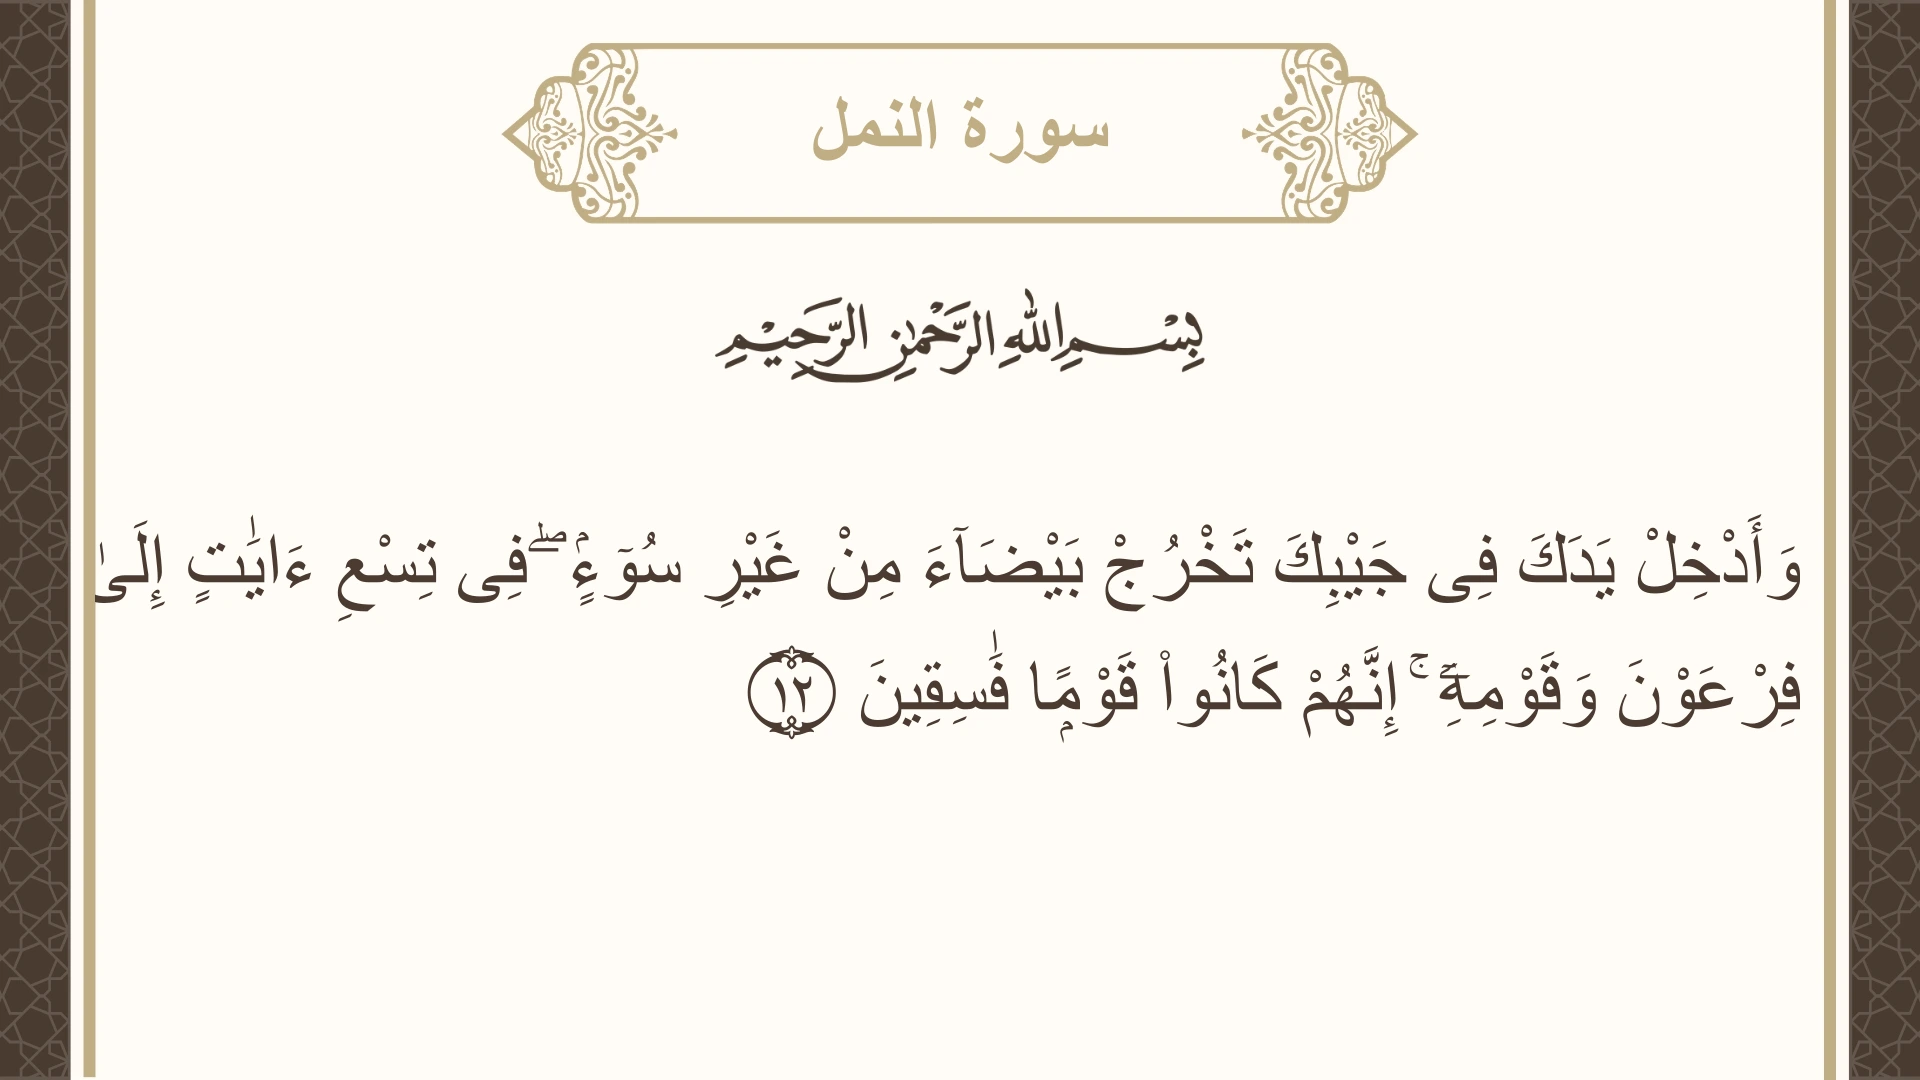 سورة النمل
بِسْمِ اللهِ الرَّحْمٰنِ الرَّحِيْمِ
وَأَدْخِلْ يَدَكَ فِى جَيْبِكَ تَخْرُجْ بَيْضَآءَ مِنْ غَيْرِ سُوٓءٍۢ ۖ فِى تِسْعِ ءَايَٰتٍ إِلَىٰ
فِرْعَوْنَ وَقَوْمِهِۦٓ ۚ إِنَّهُمْ كَانُوا۟ قَوْمًۭا فَٰسِقِينَ ١٢